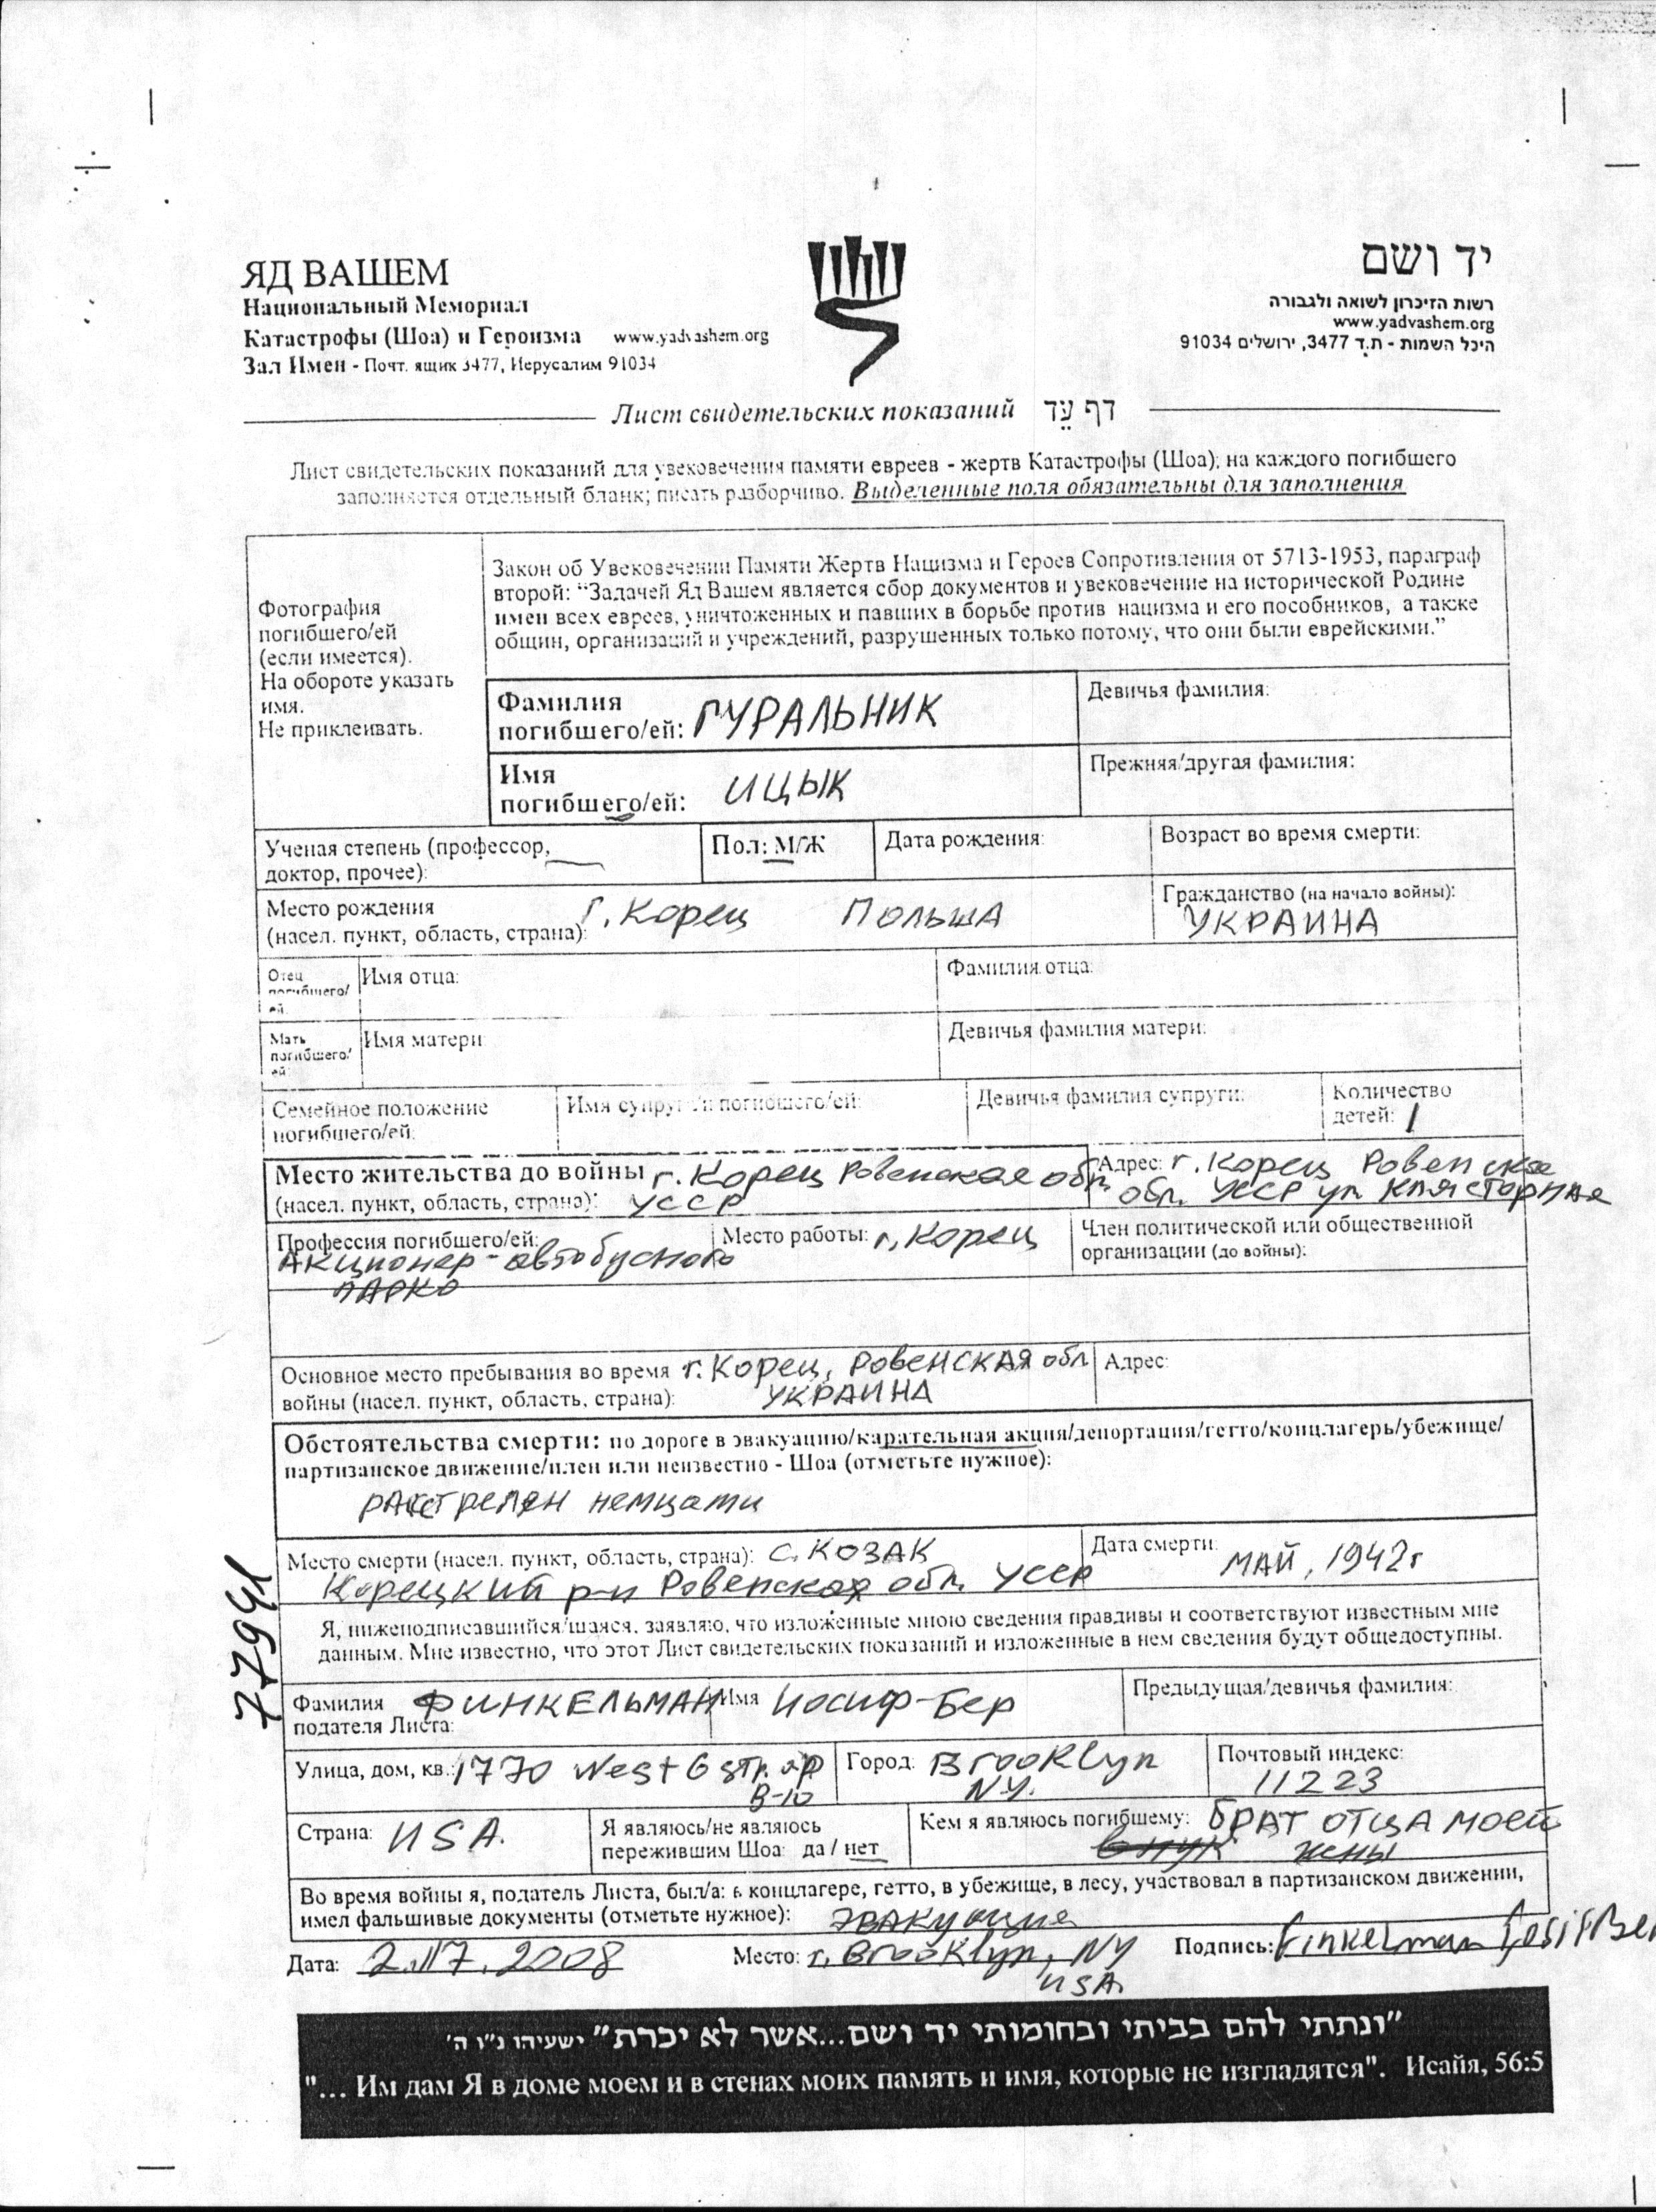 ЯД ВАШЕМ
Национальный Мемориал
Катастрофы (Шоа) и Героизма www.yadvashem.org
Зал Имен - Почт. ящик 3477, Иерусалим 91034
יד ושם
רשות הזיכרון לשואה ולגבורה
www.yadvashem.org
היכל השמות - ת.ד 3477, ירושלים 91034
Лист свидетельских показаний דף עֵד
Лист свидетельских показаний для увековечения памяти евреев - жертв Катастрофы (Шоа); на каждого погибшего
заполняется отдельный бланк; писать разборчиво. Выделенные поля обязательны для заполнения
Фотография
погибшего/ей
(если имеется).
На обороте указать
имя.
Не приклеивать.
Закон об Увековечении Памяти Жертв Нацизма и Героев Сопротивления от 5713-1953, параграф
второй: “Задачей Яд Вашем является сбор документов и увековечение на исторической Родине
имен всех евреев, уничтоженных и павших в борьбе против нацизма и его пособников, а также
общин, организаций и учреждений, разрушенных только потому, что они были еврейскими.”
Фамилия
погибшего/ей: ГУРАЛЬНИК
Девичья фамилия:
Имя
погибшего/ей: ИЦЫК
Прежняя/другая фамилия:
Ученая степень (профессор,
доктор, прочее):
Пол: М/Ж
Дата рождения:
Возраст во время смерти:
Место рождения
(насел. пункт, область, страна): г. Корец Польша
Гражданство (на начало войны):
УКРАИНА
Отец
погибшего/
ей
Имя отца:
Фамилия отца:
Мать
погибшего/
ей
Имя матери
Девичья фамилия матери:
Семейное положение
погибшего/ей
Имя супруга/и погибшего/ей:
Девичья фамилия супруги:
Количество
детей: 1
Место жительства до войны г. Корец Ровенская обл.
(насел. пункт, область, страна): УССР
Адрес: г. Корец Ровенская
обл. УССР ул Клясторная
Профессия погибшего/ей:
Акционер - автобусного
парка
Место работы: г, Корец
Член политической или общественной
организации (до войны):
Основное место пребывания во время г. Корец, Ровенская обл
войны (насел. пункт, область, страна): УКРАИНА
Адрес:
Обстоятельства смерти: по дороге в эвакуацию/карательная акция/депортация/гетто/концлагерь/убежище/
партизанское движение/плен или неизвестно - Шоа (отметьте нужное):
расстрелян немцами
Место смерти (насел. пункт, область, страна): с. КОЗАК
Корецкий р-н Ровенская обл. УССР
Дата смерти:
МАЙ, 1942г
77941
Я, нижеподписавшийся/шаяся, заявляю, что изложенные мною сведения правдивы и соответствуют известным мне
данным. Мне известно, что этот Лист свидетельских показаний и изложенные в нем сведения будут общедоступны.
Фамилия
подателя Листа: ФИНКЕЛЬМАН
Имя Иосиф-Бер
Предыдущая/девичья фамилия:
Улица, дом, кв.: 1770 West 6 str. ap
B-10
Город: Brooklyn
N.Y.
Почтовый индекс:
11223
Страна: USA.
Я являюсь/не являюсь
пережившим Шоа: да / нет
Кем я являюсь погибшему: БРАТ ОТЦА моей
внук жены
Во время войны я, податель Листа, был/а: в концлагере, гетто, в убежище, в лесу, участвовал в партизанском движении,
имел фальшивые документы (отметьте нужное): эвакуация
Дата: 2.IV.2008
Место: г. Brooklyn, NY
USA
Подпись: Finkelman
"ונתתי להם בביתי ובחומותי יד ושם...אשר לא יכרת" ישעיהו נ"ו ה'
"... Им дам Я в доме моем и в стенах моих память и имя, которые не изгладятся". Исайя, 56:5